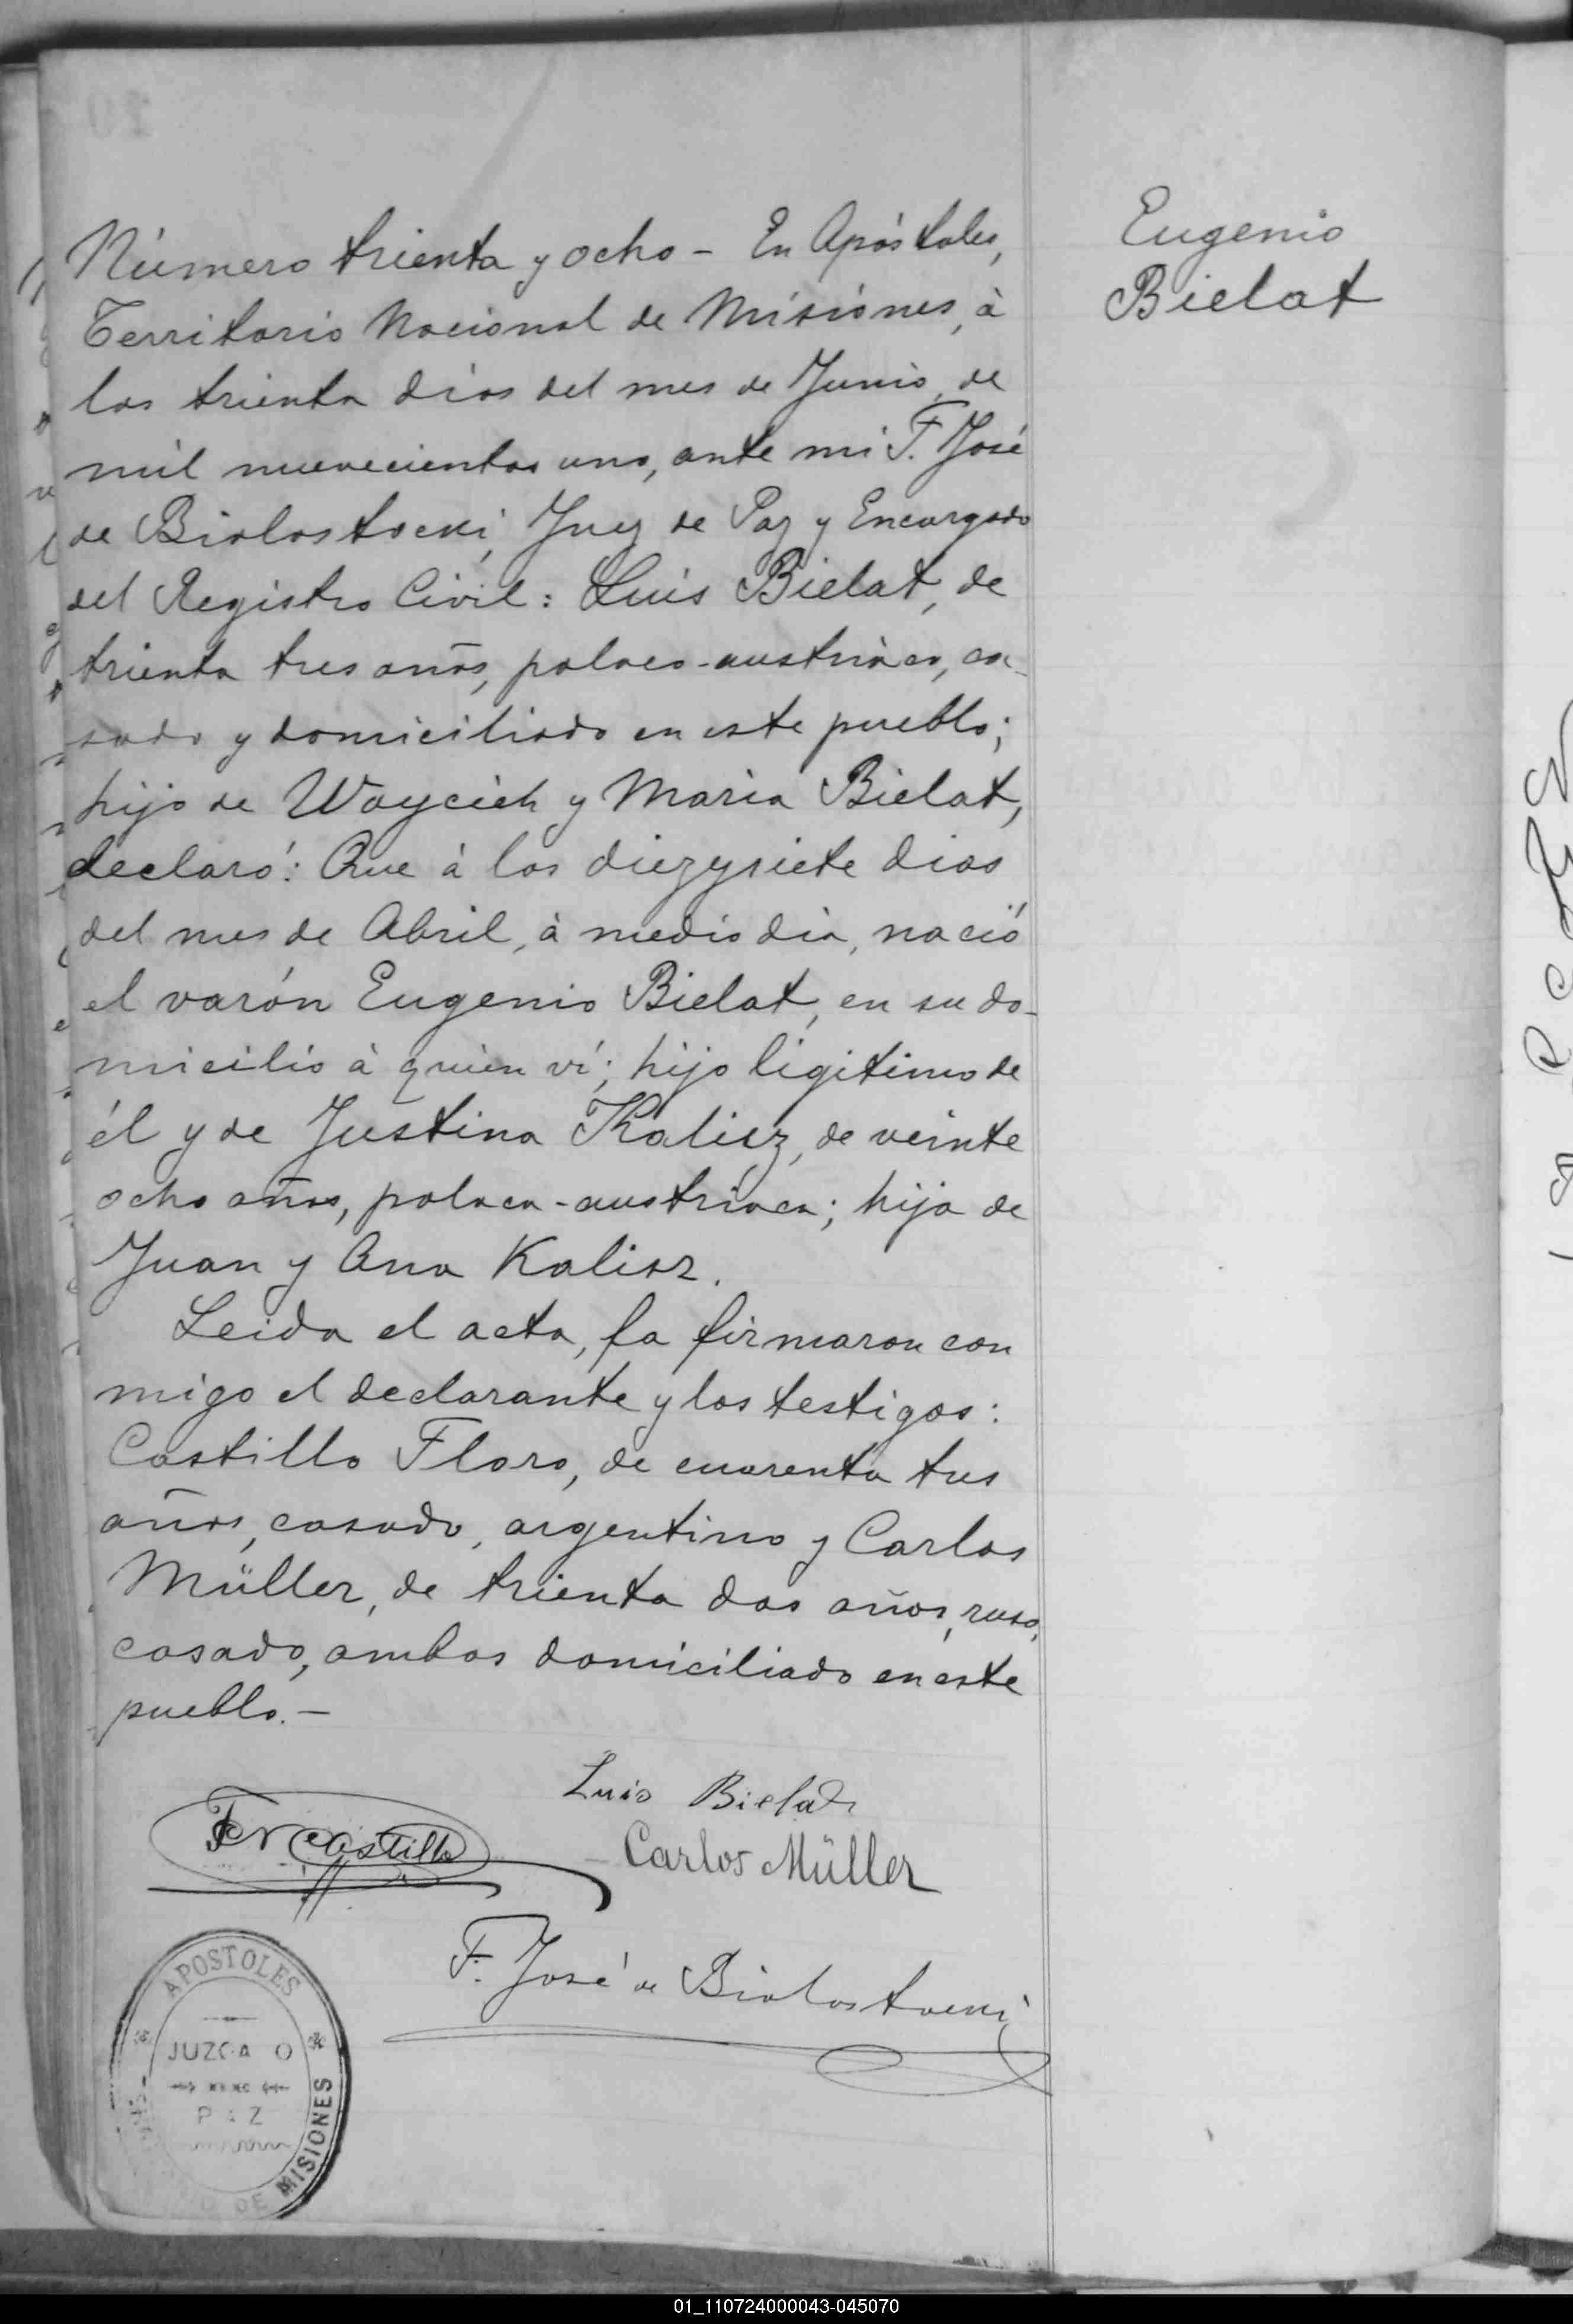 Eugenio
Bielat
Número trienta y ocho - En Apóstoles,
Territorio Nacional de Misiones, à
los trienta dias del mes de Junio, de
mil nuevecientos uno, ante mi F. José
de Bialostocki, Juez de Paz y Encargado
del Registro Civil: Luis Bielat, de
trienta tres años, polaco-austriàco, ca-
sado y domiciliado en este pueblo;
hijo de Woyciech y Maria Bielat,
declaró: Que à los diezysiete dias
del mes de Abril, à medio dia, nació
el varón Eugenio Bielat, en su do-
micilio à quien ví; hijo ligitimo de
él y de Justina Kalisz, de veinte
ocho años, polaca-austriaca; hija de
Juan y Ana Kalisz.
Leida el acta, la firmaron con
migo el declarante y los testigos:
Castillo Floro, de cuarenta tres
años, casado, argentino y Carlos
Müller, de trienta dos años, ruso,
casado, ambos domiciliado en este
pueblo.-
Luis Bielat
Castillo
Carlos Müller
F. José de Bialostocki
APOSTOLES
JUZGA O
P Z
DE MISIONES
01_110724000043-045070